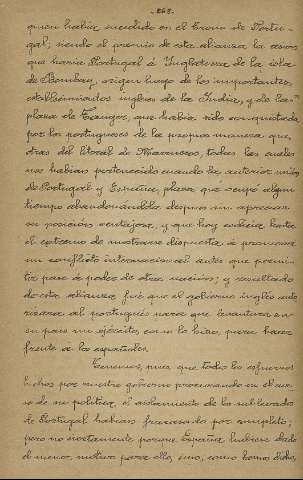 -268-
quien había sucedido en el trono de Portu-
gal; siendo el premio de esta alianza la cesion
que haria Portugal á Inglaterra de la isla
de Bombay, origen luego de los importantes
establecimientos ingleses de la India, y de la
plaza de Tanger, que habia sido conquistada
por los portugueses de la propia manera que
otras del litoral de Marruecos, todas las cuales
nos habian pertenecido cuando la anterior union
de Portugal y España, plaza que ocupó algun
tiempo abandonándola despues sin apreciar
su posicion ventajosa, y que hoy codicia hasta
el extremo de mostrarse dispuesta á promover
un conflicto internacional antes que permi-
tir pase á poder de otra nacion; y resultado
de esta alianza fué que el gobierno inglés auto
rizara al portugués para que levantara en
su pais un ejército, como lo hizo, para hacer
frente á los españoles.
Tenemos, pues que todos los esfuerzos
hechos por nuestro gobierno procurando en el cur-
so de su politica, el aislamiento de los sublevados
de Portugal habian fracasado por completo;
pero no ciertamente porque España hubiese dado
el menor motivo para ello, sino, como hemos dicho,